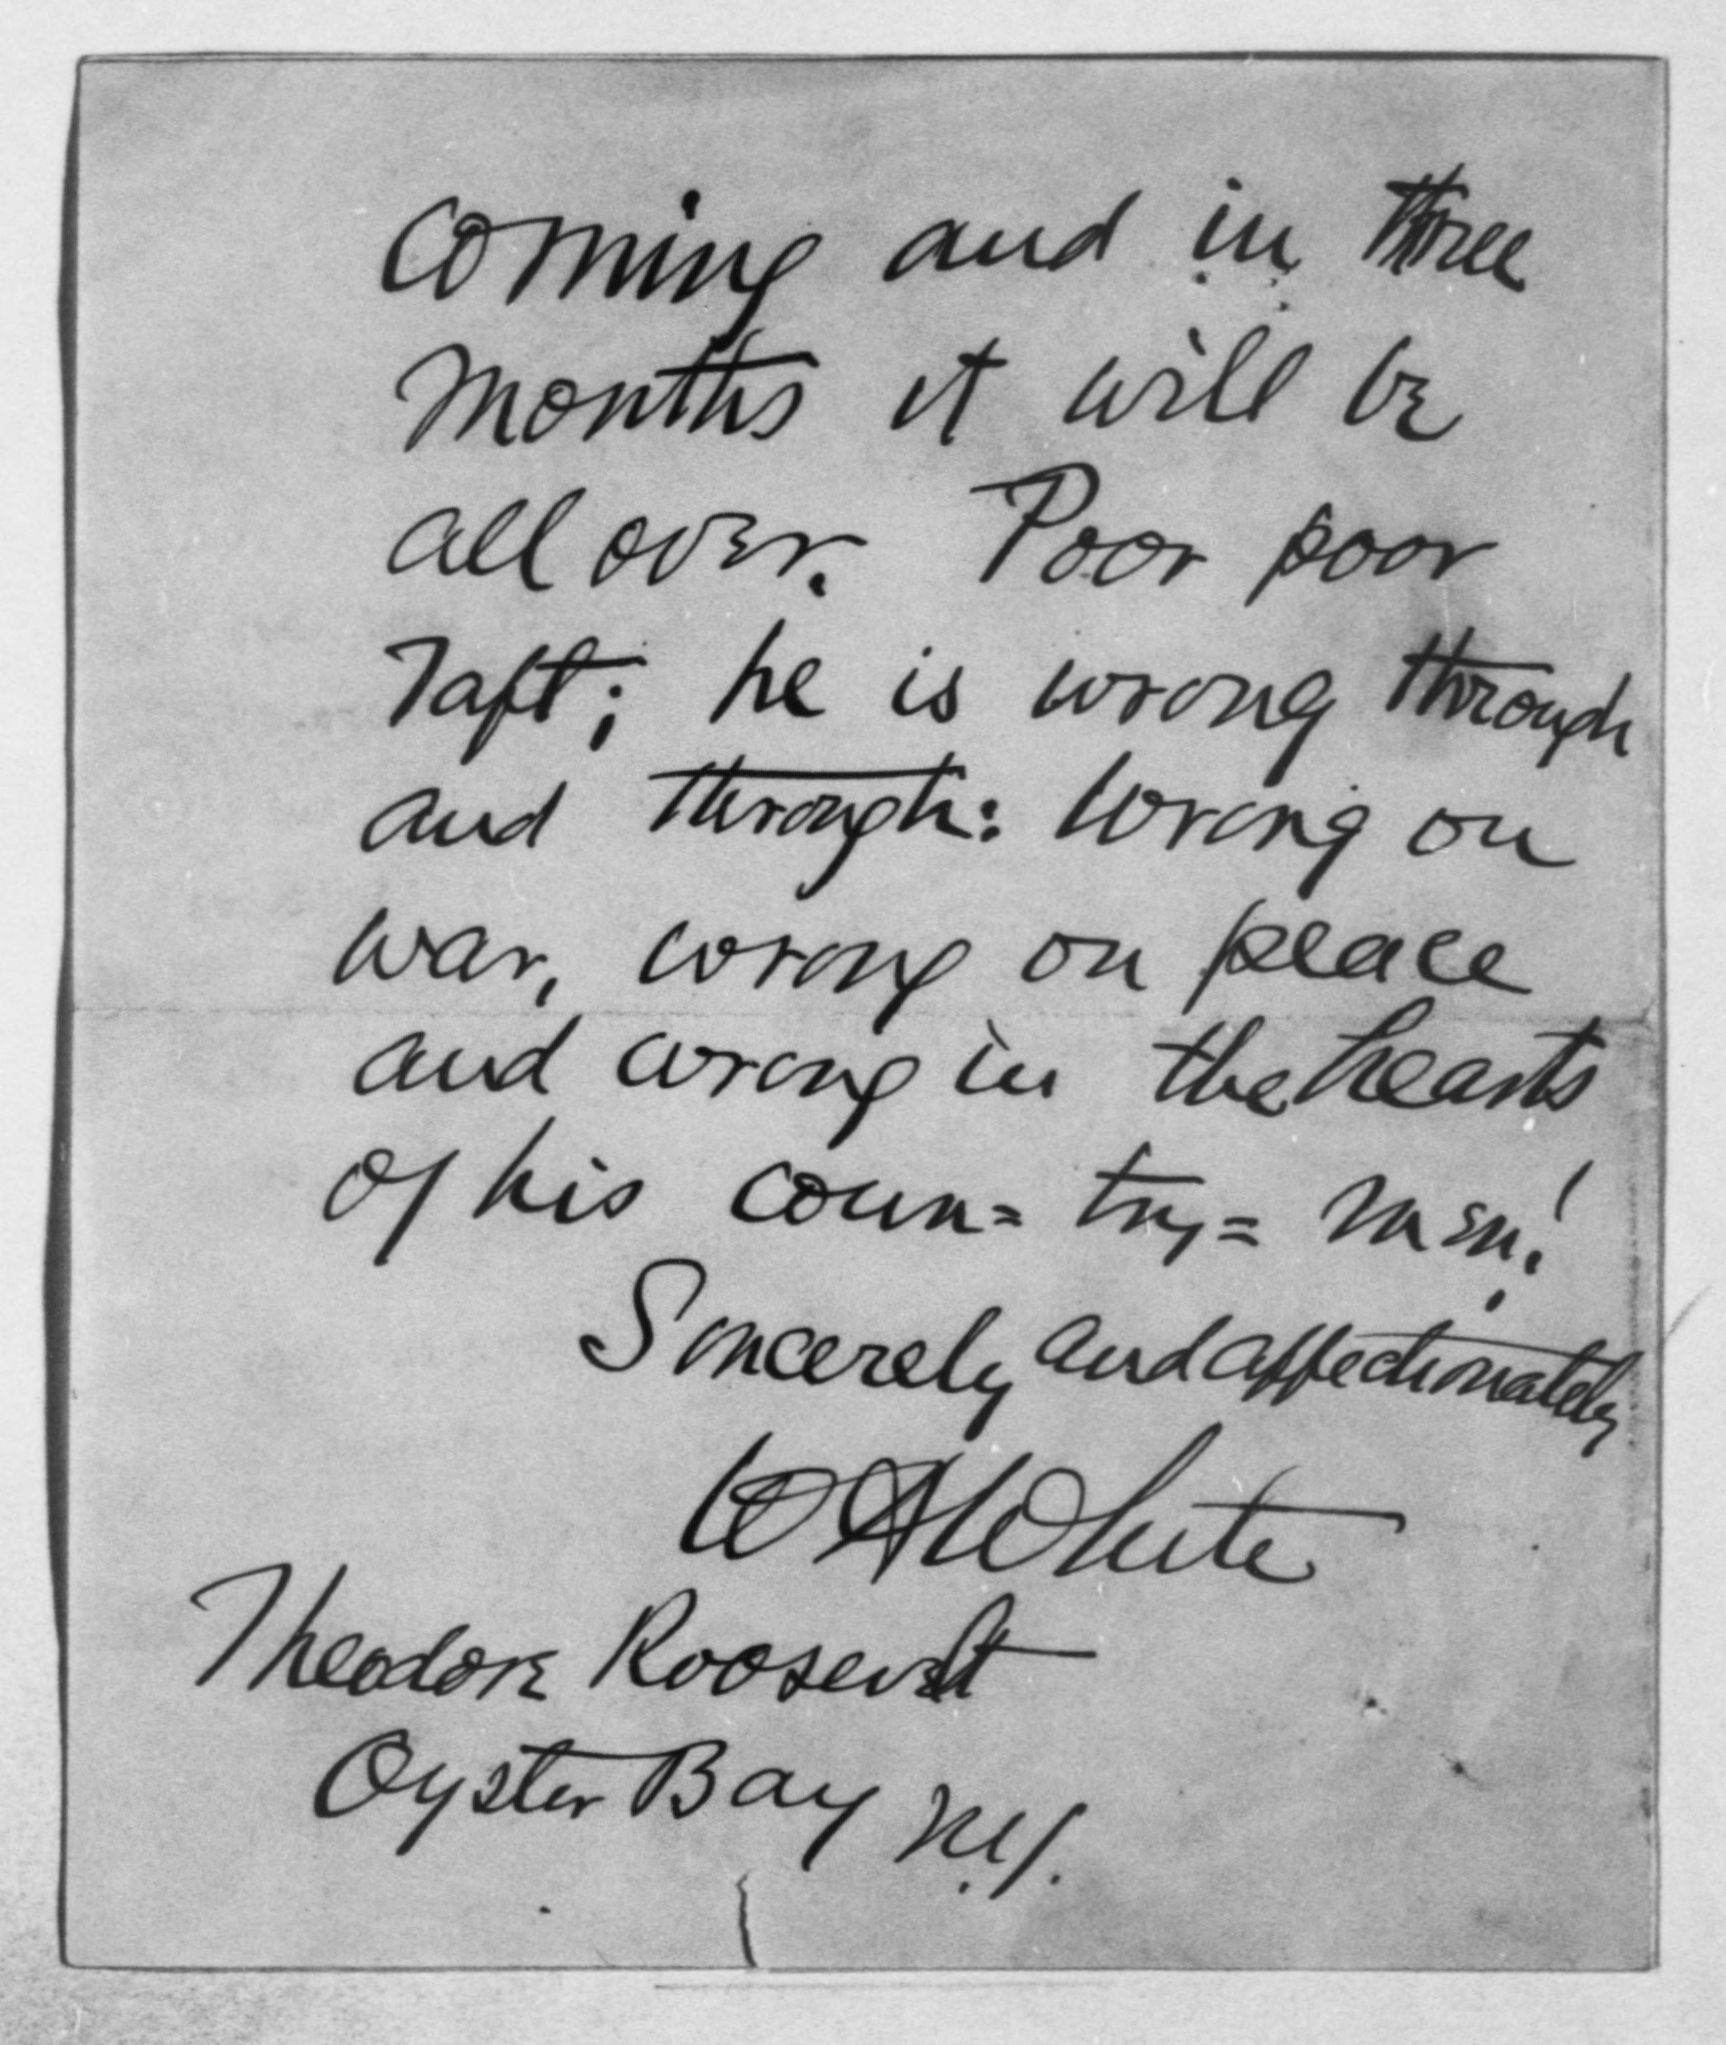 coming and in three
months it will be
all over. Poor poor
Taft; he is wrong through
and through: wrong on
war, wrong on peace
and wrong in the hearts
of his coun= try= men!
Sincerely and affectionately
W A White
Theodore Roosevelt
Oyster Bay N.Y.